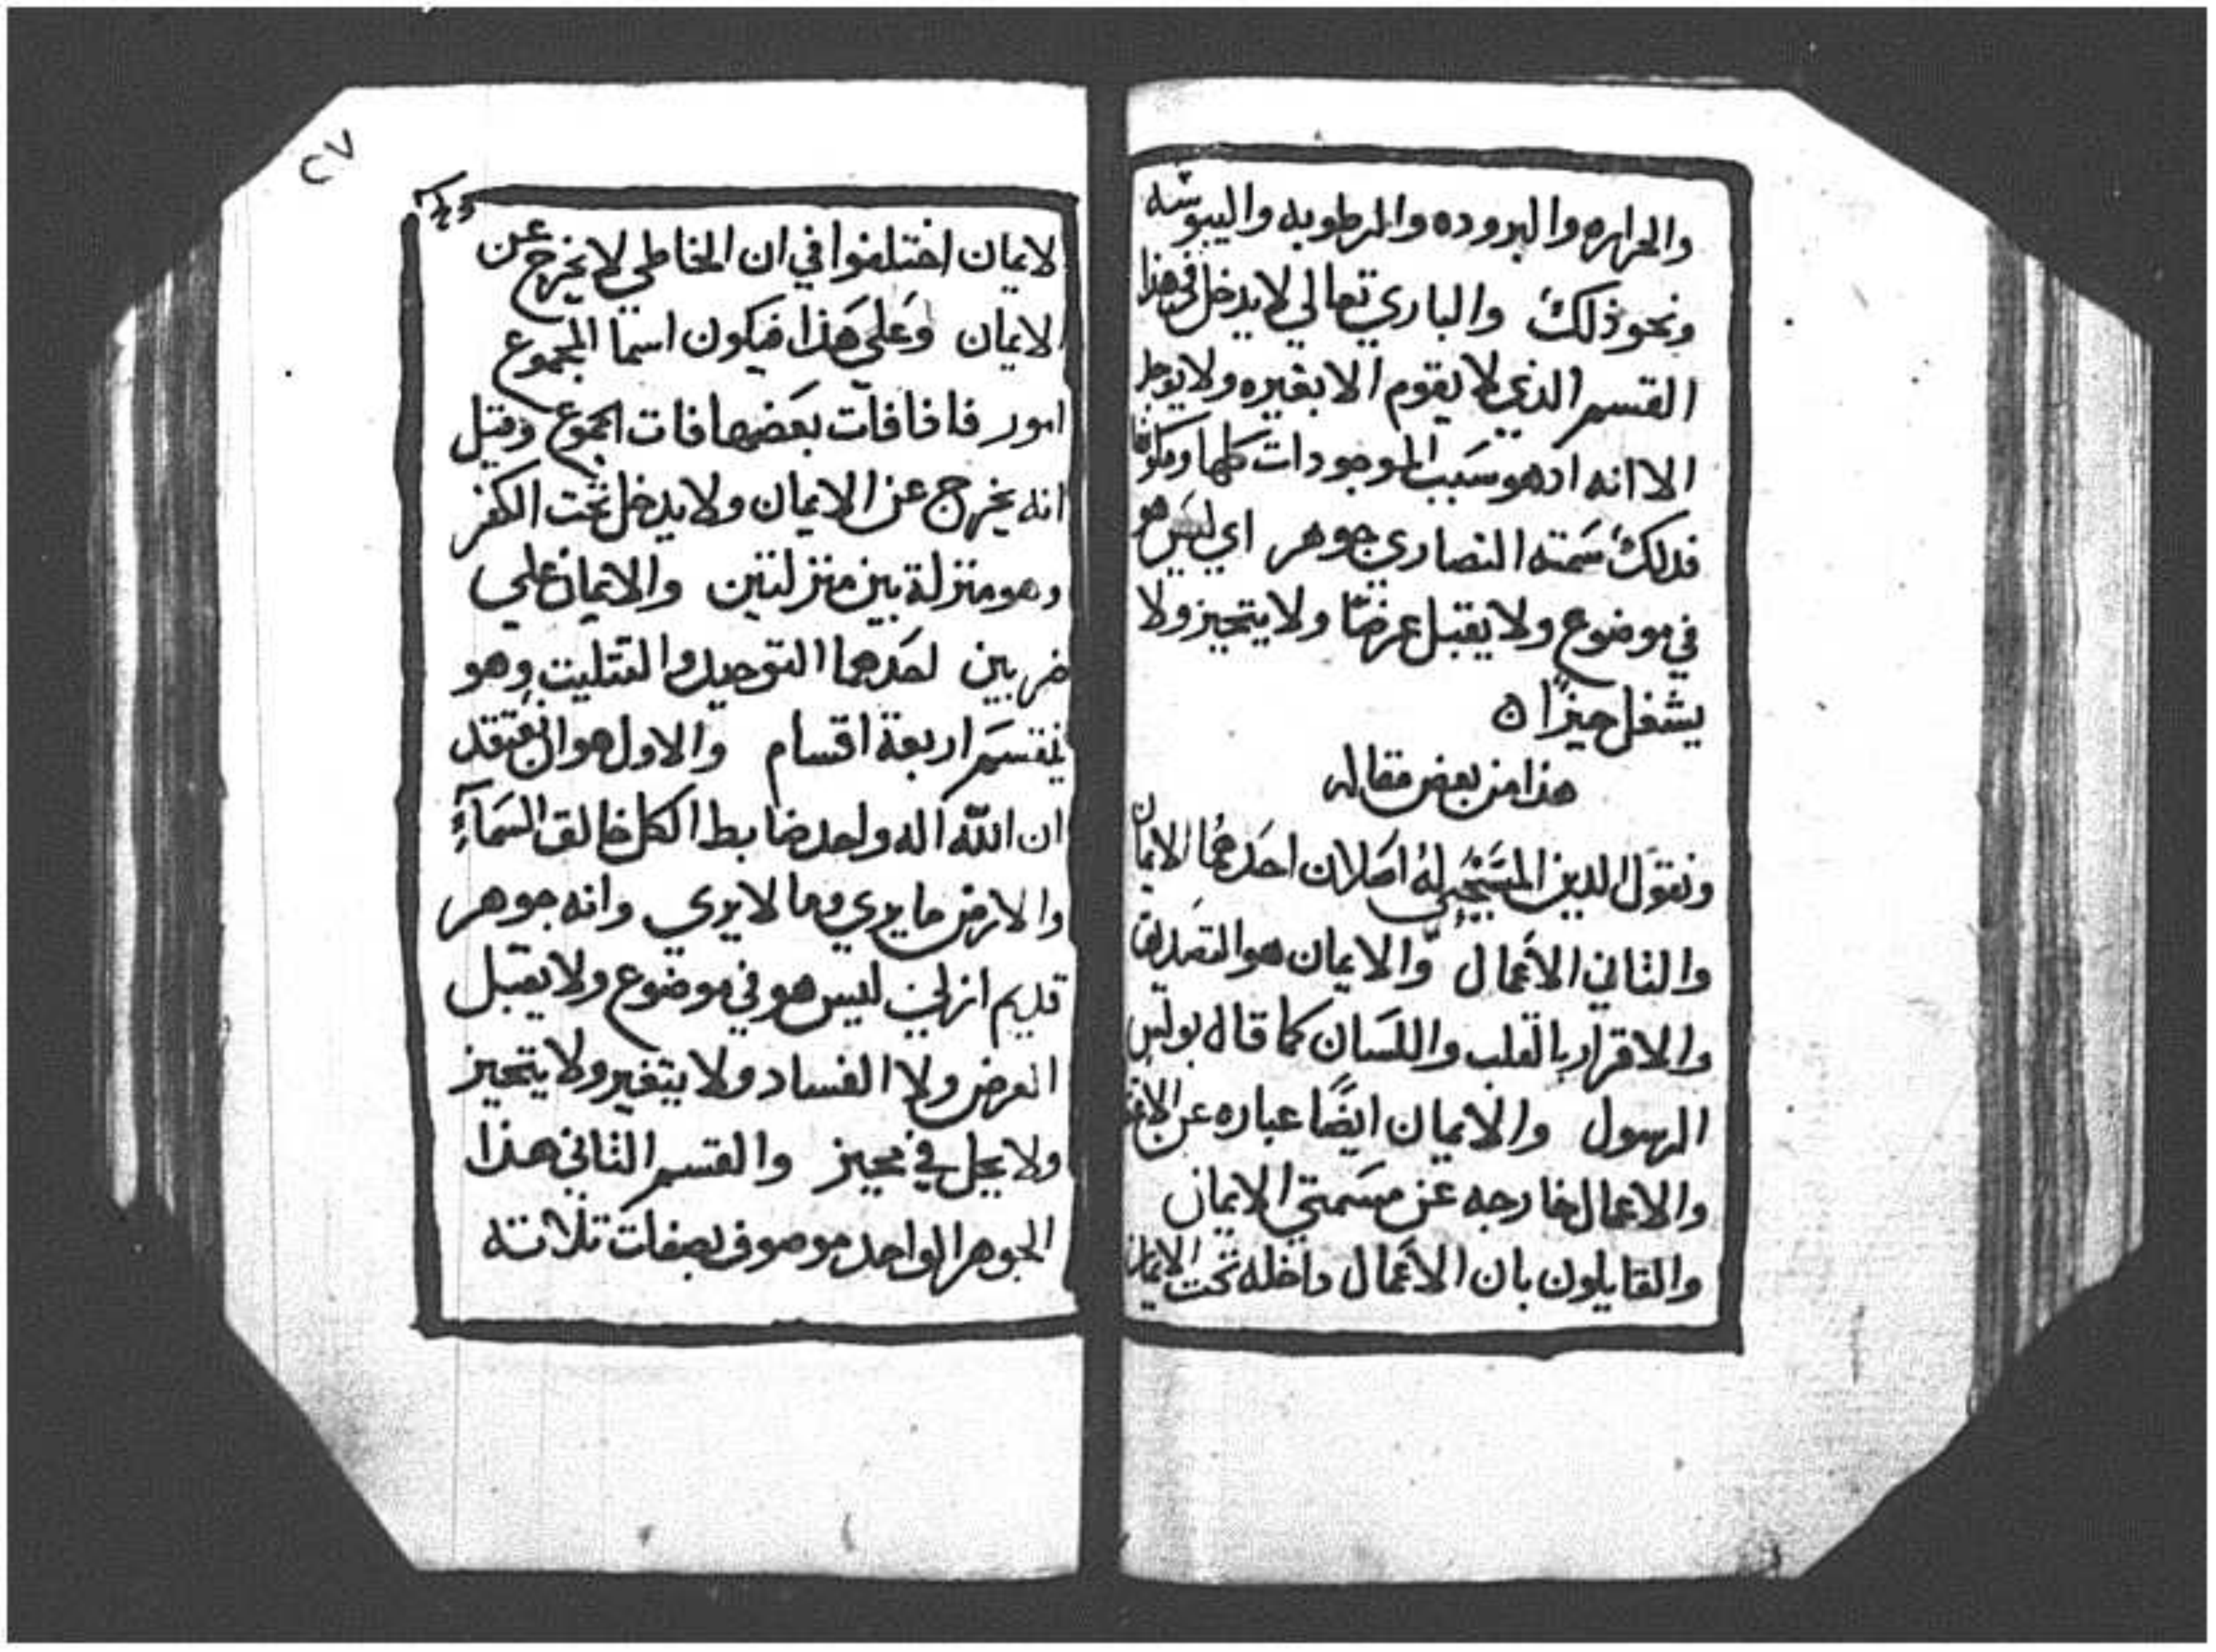 والحراره والبروده والرطوبه واليبوسه
ونحو ذلك والباري تعالي لا يدخل في هذا
القسم الذي لا يقوم الا بغيره ولا يوجد
الا انه اد هو سبب الموجودات كلها ومكونها
فدلك سمته النصاري جوهر اي ليس هو
في موضوع ولا يقبل عرضًا ولا يتحيز ولا
يشغل حيزًا ه
هذا من بعض مقاله
ونقول الدين المسيحي له اصلان احدهما الايمان
والثاني الاعمال والايمان هو التصديق
والاقرار بالقلب واللسان كما قال بولس
الرسول والايمان ايضًا عباره عن
والاعمال خارجه عن مسمتي الايمان
والقايلون بان الاعمال داخله تحت الايمان
٢٧
لايمان اختلفوا في ان الخاطي لا يخرج عن
الايمان وعلي هذا فيكون اسما المجموع
امور فافا فات بعضها فات الجموع وقيل
انه يخرج عن الايمان ولا يدخل تحت الكفر
وهو منزلة بين منزلتين والايمان علي
ضربين احدهما التوحيد والتتليت وهو
ينقسم اربعة اقسام والاول هو ان يعتقد
ان الله اله واحد ضابط الكل خالق السمآء
والارض ما يري وما لا يري وانه جوهر
قديم ازلي ليس هو في موضوع ولا يقبل
العرض ولا الفساد ولا يتغير ولا يتحيز
ولا يحل في محيز والقسم الثاني هذا
الجوهر الواحد موصوف بصفات تلاتة